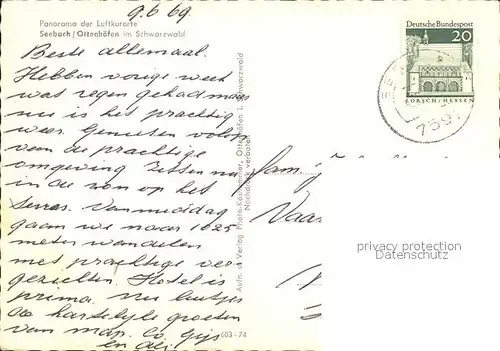 9.6 69.
Panorama der Luftkurorte
Seebach/Ottenhöfen im Schwarzwald
Beste allemaal.
Hebben vorige week
wat regen gehad maar
nu is het prachtig
weer. Genieten volop
van de prachtige
omgeving Zitten nu
in de zon op het
terras. Vanmiddag
gaan we naar 1025
meter wandelen
met prachtige ver-
gezichten. Hotel is
prima. nu luitjes
de hartelyke groeten
van map. Co. Gijs
en Ali
Aufn. u. Verlag Photo-Kaufhammer, Ottenhöfen i. Schwarzwald
Nachdruck verboten
603-74
Deutsche Bundespost
20
LORSCH/HESSEN
759
Fam.
Naar
privacy protection
Datenschutz